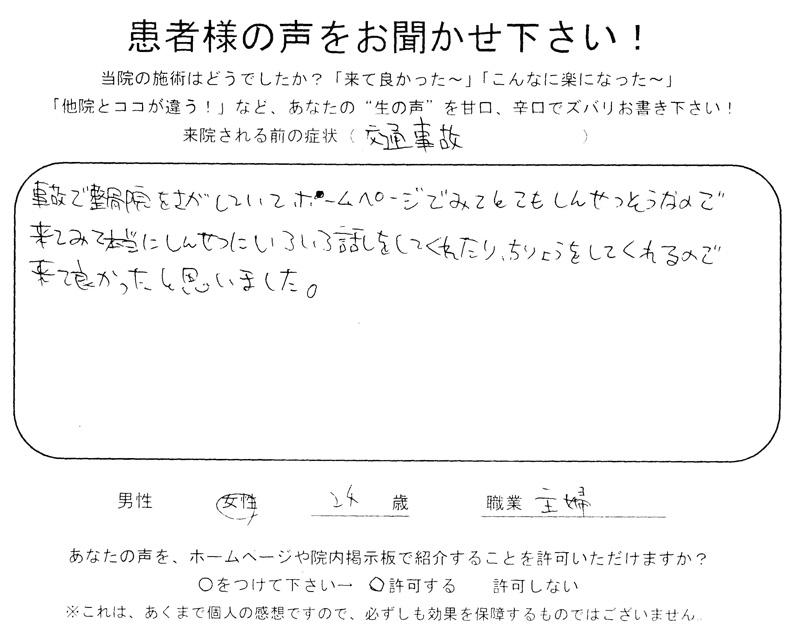 患者様の声をお聞かせ下さい！
当院の施術はどうでしたか？「来て良かった～」「こんなに楽になった～」
「他院とココが違う！」など、あなたの“生の声”を甘口、辛口でズバリお書き下さい！
来院される前の症状（ 交通事故 ）
事故で整骨院をさがしていてホームページでみてとてもしんせつそうなので
来てみて本当にしんせつにいろいろ話しをしてくれたり、ちりょうをしてくれるので
来て良かったと思いました。
男性 女性 24 歳 職業 主婦
あなたの声を、ホームページや院内掲示板で紹介することを許可いただけますか？
○をつけて下さい→ ○許可する 許可しない
※これは、あくまで個人の感想ですので、必ずしも効果を保障するものではございません。